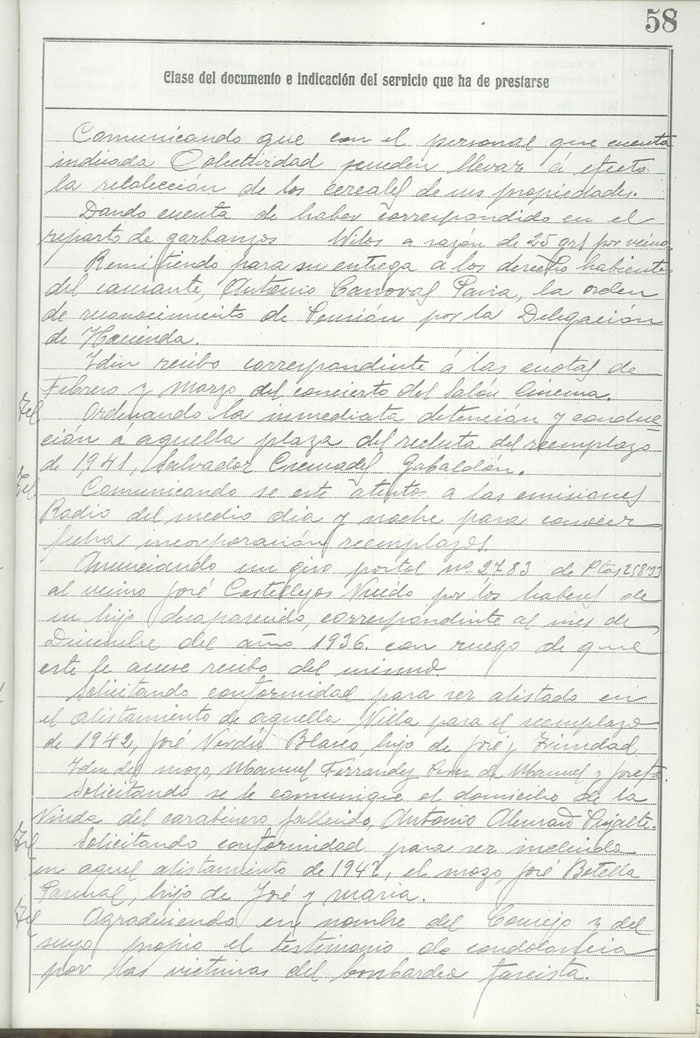 58
Clase del documento e indicación del servicio que ha de prestarse
Comunicando que con el personal que cuenta
indicada Colectividad pueden llevar á efecto
la recolección de los cereales de sus propiedades.
Dando cuenta de haber correspondido en el
reparto de garbanzos Kilos a razón de 25 grs por vecino
Remitiendo para su entrega a los derecho habientes
del causante, Antonio Canovas Pavia, la orden
de reconocimiento de Pensión por la Delegación
de Hacienda.
Idem recibo correspondiente á las cuotas de
Febrero y Marzo del concierto del Salón Cinema.
Tel. Ordenando la inmediata detención y conduc-
ción á aquella plaza del recluta del reemplazo
de 1941, Salvador Cremades Gabaldón.
Tel. Comunicando se esté atentos a las emisiones
Radio del medio día y noche para conocer
fecha incorporación reemplazos
Anunciando un giro postal nº 2783 de Ptas
al vecino José Castellejos Vicedo por los haberes de
su hijo desaparecido, correspondiente al mes de
Diciembre del año 1936. con ruego de que
este le acuse recibo del mismo.
Solicitando conformidad para ser alistado en
el alistamiento de aquella Villa para el reemplazo
de 1942, José Verdú Blasco, hijo de José y Trinidad
Idem del mozo, Manuel Ferrandez de Manuel y Josefa.
Solicitando se le comunique el domicilio de la
Viuda del carabinero fallecido, Antonio Alemañ
Tel Solicitando conformidad para ser incluido
en aquel alistamiento de 1942, el mozo José Botella
Pascual, hijo de José y maria.
Tel Agradeciendo en nombre del Consejo y del
suyo propio el testimonio de condolencia
por las victimas del bombardeo fascista.